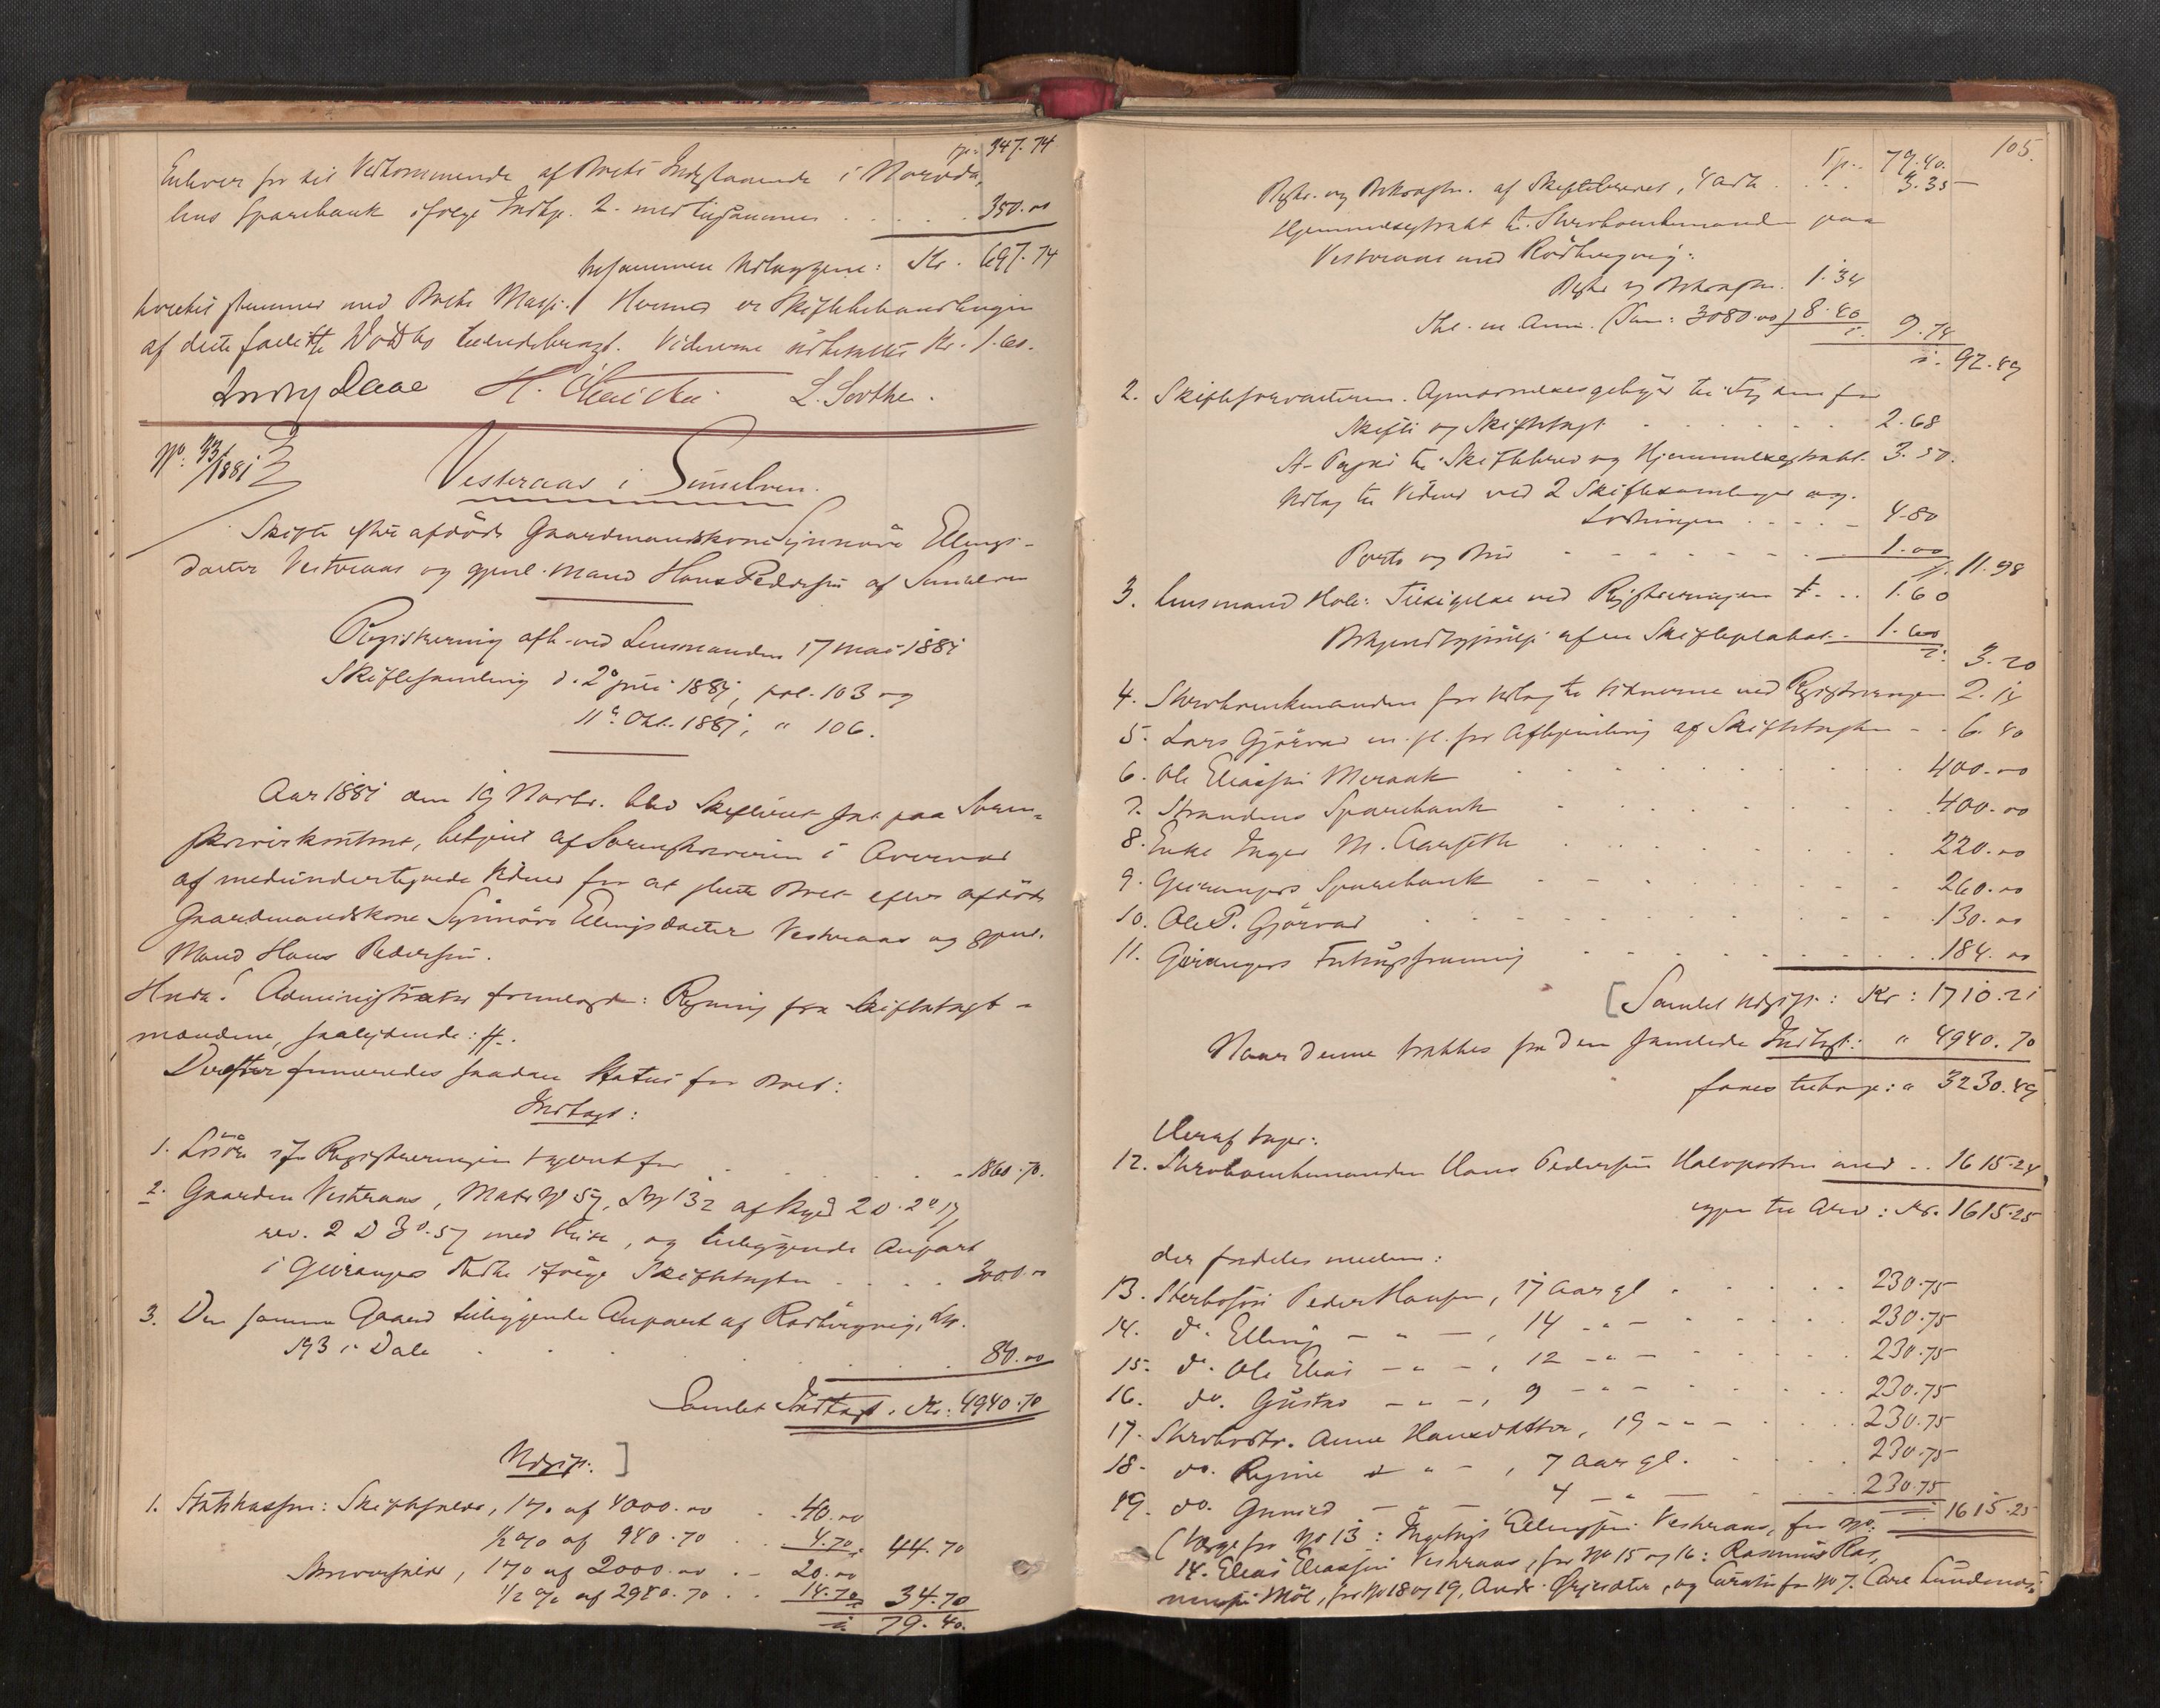 Tp. 347.74
Enhver for sit Vedkommende af Boets Indestaaende i Norddal
hus Sparebank ifølge Indtgt. 2. med tilsammen . . . . . 350.00
tilsammen Udlæggene: Kr. 697.74
hvilket stemmer med Boets Masse. Hermed er Skiftebehandlingen
af dette facitte Dødsbo tilendebragt. Vidnerne udbetaltes Kr. 1.60.
Ludvig Daae L. Sæther.
No. 73/1881
Vesteraas i Sunelven.
Skifte efter afdöde Gaardmandskone Synnöve Ellings-
datter Vesteraas og gjenl. Mand Hans Pedersen af Sunelven
Registrering afh. ved Lensmanden 17 mai 1881
Skiftesamling d. 2 juli 1881, fol. 103 og
11te Okt. 1881, " 106.
Aar 1881 den 19 Novbr. blev Skifteret sat paa Soren-
skriverkontoret, betjent af Sorenskriveren i Overvær
af medundertegnede Vidner for at slutte Boet efter afdöde
Gaardmandskone Synnöve Ellingsdatter Vesteraas og gjenl.
Mand Hans Pedersen.
Administrator fremlagde: Regning fra Skiftetaxt-
mændene, saalydende: #.
Derefter formeredes saadan Status for Boet:
Indtægt:
1. Lösöre ifr Registreringen tagent for . . . 1860.70.
2. Gaarden Vesteraas, Matr No 57, Lnr 132 af Skyld 2 D. 2 o 17,
rev. 2 D 3 o. 57 med Huse, og tilliggende Anpart
i Geiranger Kirke ifölge Skiftetaxten . . . . 3000.00
3. Den samme Gaard tilliggende Anpart af Rödbergvig, Lnr.
193 i Dale . . . 80.00
Samlet Indtægt. Kr. 4940.70
Udgift. ]
1. Statskassen: Skifteafgift, 1% af 4000.00 . . 40.00
1/2 % af 940.70 . . 4.70 44.70
Arveafgift, 1% af 2000.00 . – 20.00
1/2 % af 2940.70 . . 14.70 34.70
79.40.
105.
Tp.. 79.40.
Besk. og Bekræftn. af Skiftebrevet, 4 Ark . . . . 3.35
Hjemmelsextrakt til Sterboenkemanden paa
Vesteraas med Rödbergvig:
Besk. og Bekræftn. 1.34
Thl. m. Ann. (Sum: 3080.00) 8.40 9.74
92.49
2. Skifteforvalteren. Opnævnelsesgebyr til Fogden for
Skifte og Skiftetaxt . . . . . . . 2.68
St. Papir til Skiftebrev og Hjemmelsextrakt. 3.50.
Udlæg til Vidner ved 2 Skiftesamlinger og
Lodningen . . . . – 4.80
Porto og Bud - - - - - - - 1.00 11.98
3. Lensmand Hole: Tilsigelse ved Registreringen . . . 1.60
Bekjendtgjörelse af en Skifteplakat. . 1.60 3.20
4. Sterboenkemanden for Udlæg til Vidnerne ved Registreringen 2.14
5. Lars Gjörvad m. fl. for Afhjemling af Skiftetaxten - - 6.40
6. Ole Eliassen Meraak . . . . . . . . 400.00
7. Strandens Sparebank . . . . . . . 400.00
8. Enke Inger M. Aarseth . . . . . . . 220.00
9. Geirangers Sparebank - - - - - - - 260.00
10. Ole P. Gjörvad . . . . . . . . 130.00
11. Geirangers Forbrugsforening . . . . . . . 184.00
[Samlet Udgift: Kr: 1710.21
Naar denne trækkes fra den samlede Indtægt: " 4940.70
faaes tilbage: " 3230.49
Heraf tager:
12. Sterboenkemanden Hans Pedersen Halvparten med .. 1615.24
igjen til Arv: Kr. 1615.25
der fordeles mellem:
13. Sterbosön Peder Hansen, 17 Aar gl . . . . . 230.75
14. do. Elling – " – , 14 - " - . . . . 230.75
15. do. Ole Elias – " – , 12 - " - . . . . 230.75
16. do. Gustav – " – , 9 - " - . . . . 230.75
17. Sterbodtr. Anne Hansdatter, 19 - " - . . . . 230.75
18. do. Regine – " – , 7 Aar gl. . . . . 230.75
19. do. Gunild – – , 4 – " – . . . 230.75 1615.25
(Værge for No 13: Ingebrigt Ellingsen Vesteraas, for No.
14. Elias Eliassen Vesteraas, for No 15 og 16: Rasmus Ras-
mussen Möl, for No 18 og 19, og Curator for No 7.